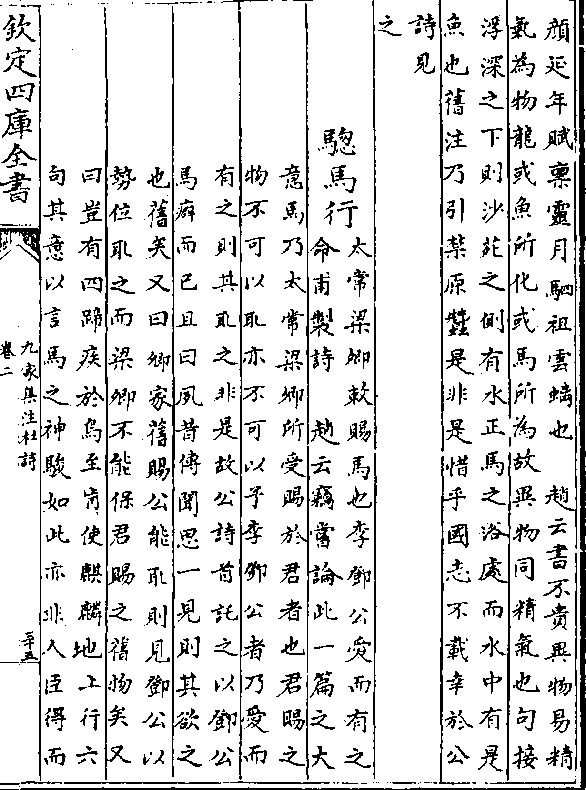 顔延年賦稟靈月駟祖雲螭也　趙云書不貴異物易精
氣為物龍或魚所化或馬所為故異物同精氣也句接
浮深之下則沙苑之側有水正馬之浴處而水中有是
魚也舊注乃引禁原蠶是非是惜乎國志不載幸於公
詩見
之
驄馬行
太常梁卿敕賜馬也李鄧公愛而有之
命甫製詩　趙云竊嘗論此一篇之大
意馬乃太常梁卿所受賜於君者也君賜之
物不可以取亦不可以予李鄧公者乃愛而
有之則其取之非是故公詩首託之以鄧公
馬癖而已且曰夙昔傳聞思一見則其欲之
也舊矣又曰卿家舊賜公能取則見鄧公以
勢位取之而梁卿不能保君賜之舊物矣又
曰豈有四蹄疾於鳥至肯使騏驎地上行六
句其意以言馬之神駿如此亦非人臣得而
欽定四庫全書
九家集注杜詩
卷二
二十五